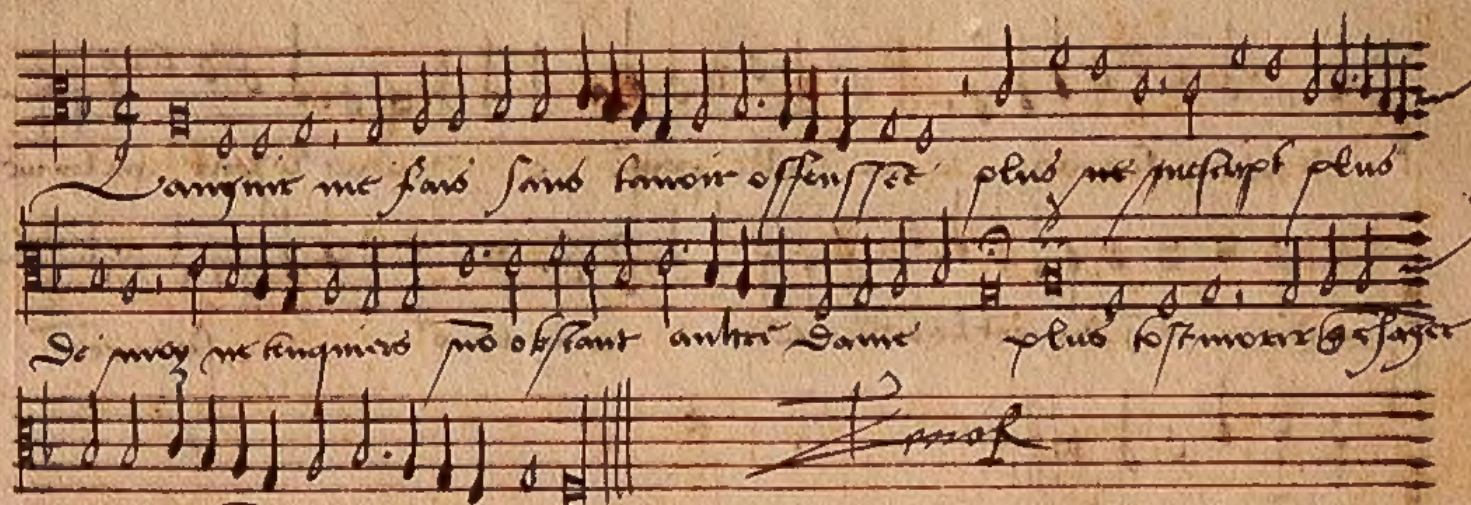 Languir me fais sans tavoir offensee plus ne mescript plus
de moy ne tenquiers nō obstant aultre dame plus tost morir q̄ chāger
Tenor